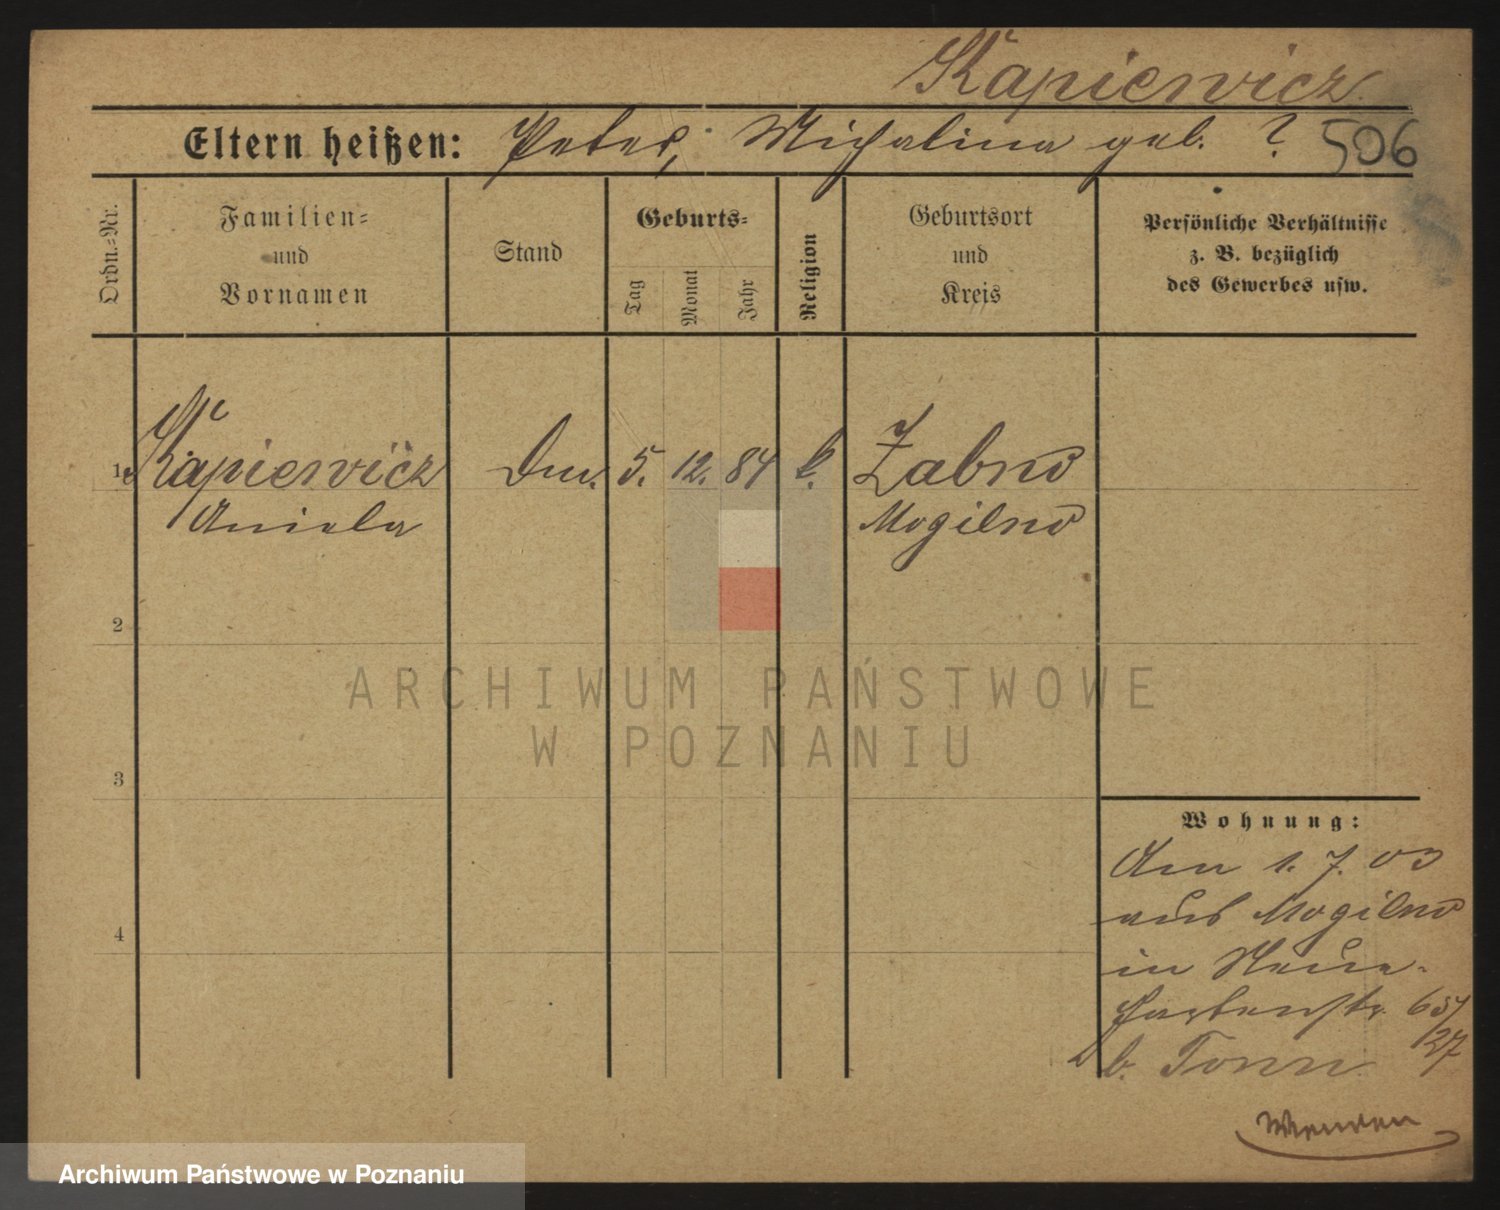 Kapiewicz
Eltern heißen: Peter, Michalina geb. ?
506
Ordn.=Nr.
Familien=
und
Vornamen
Stand
Geburts=
Tag
Monat
Jahr
Religion
Geburtsort
und
Kreis
Persönliche Verhältnisse
z. B. bezüglich
des Gewerbes usw.
1 Kapiewicz 5. 12. 84 k. Zabno
Aniela Mogilno
2
3
4
Wohnung:
Am 1. 7. 03
aus Mogilno
in Neue-
Gartenstr. 65/
27
b. Tonn
ARCHIWUM PAŃSTWOWE
W POZNANIU
Archiwum Państwowe w Poznaniu